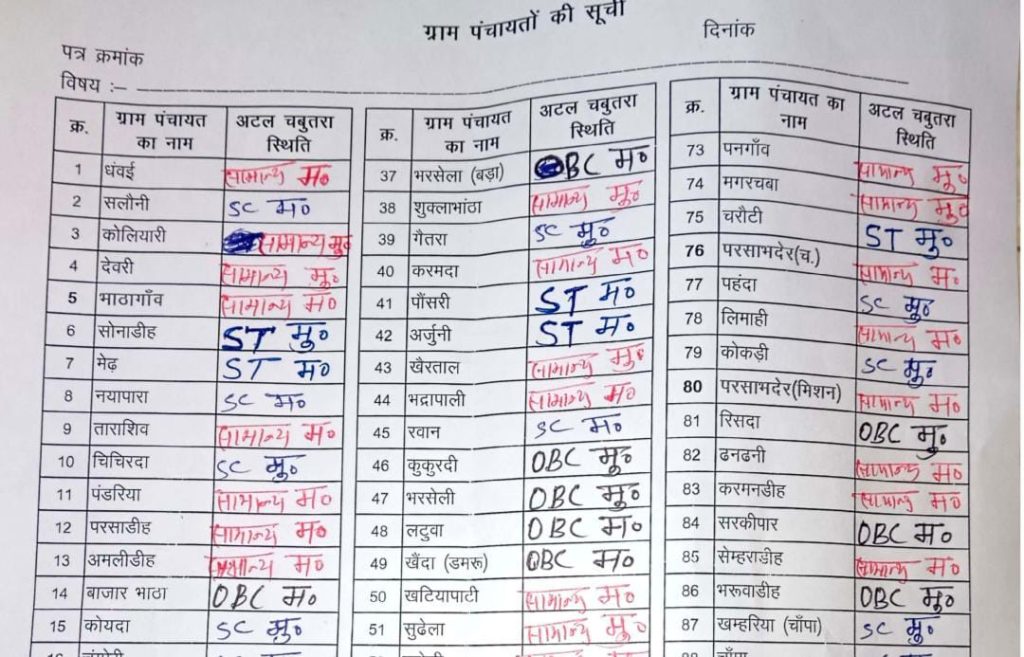 ग्राम पंचायतों की सूची
पत्र क्रमांक दिनांक
विषय :–
क्र. ग्राम पंचायत का नाम अटल चबुतरा स्थिति
1 धंवई सामान्य म०
2 सलौनी SC म०
3 कोलियारी सामान्य मु०
4 देवरी सामान्य मु०
5 भाठागाँव सामान्य म०
6 सोनाडीह ST मु०
7 मेढ़ ST म०
8 नयापारा SC म०
9 ताराशिव सामान्य म०
10 चिचिरदा SC मु०
11 पंडरिया सामान्य म०
12 परसाडीह सामान्य म०
13 अमलीडीह सामान्य म०
14 बाजार भाठा OBC म०
15 कोयदा SC मु०
क्र. ग्राम पंचायत का नाम अटल चबुतरा स्थिति
37 भरसेला (बड़ा) OBC म०
38 शुक्लाभांठा सामान्य मु०
39 गैतरा SC मु०
40 करमदा सामान्य म०
41 पौंसरी ST म०
42 अर्जुनी ST म०
43 खैरताल सामान्य मु०
44 भद्रापाली सामान्य म०
45 रवान SC म०
46 कुकुरदी OBC मु०
47 भरसेली OBC मु०
48 लटुवा OBC म०
49 खैंदा (डमरू) OBC म०
50 खटियापाटी सामान्य म०
51 सुढेला सामान्य मु०
क्र. ग्राम पंचायत का नाम अटल चबुतरा स्थिति
73 पनगाँव सामान्य मु०
74 मगरचबा सामान्य मु०
75 चरौटी ST मु०
76 परसाभदेर(च.) सामान्य म०
77 पहंदा SC मु०
78 लिमाही सामान्य म०
79 कोकड़ी SC मु०
80 परसाभदेर(मिशन) सामान्य म०
81 रिसदा OBC मु०
82 ढनढनी सामान्य म०
83 करमनडीह सामान्य म०
84 सरकीपार OBC म०
85 सेम्हराडीह सामान्य म०
86 भरूवाडीह OBC मु०
87 खम्हरिया (चाँपा) SC मु०